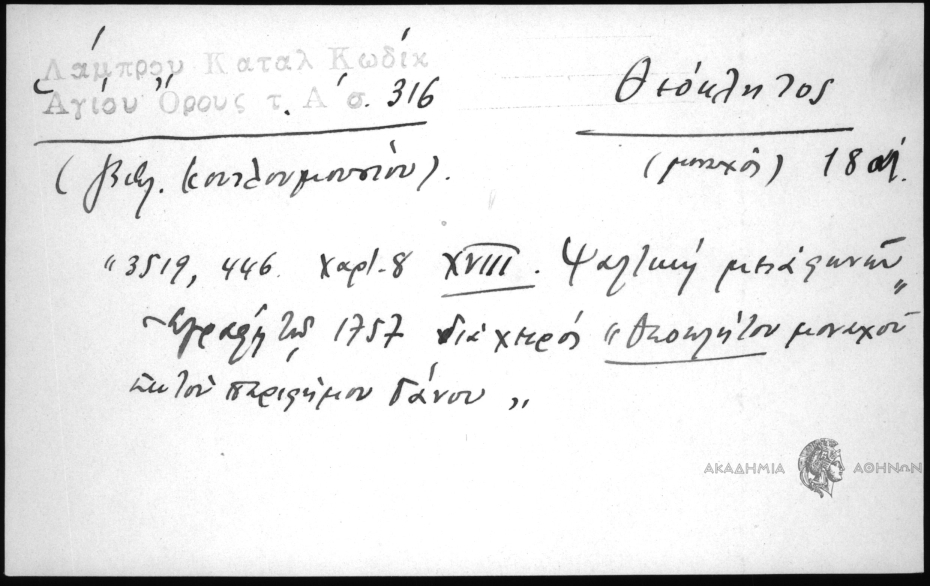 Λάμπρου Καταλ Κωδίκ
Αγίου Όρους τ. Α σ. 316
Θεόκλητος
(βιβλ. Κουτλουμουσίου).
(μοναχός) 18 αι.
"3519, 446. χαρτ. 8 XVIII. Ψαλτική μετὰ φωνῶν"
Εγράφη τῷ 1757 διὰ χειρός "Θεοκλήτου μοναχοῦ
ἐκ τοῦ περιφήμου Γάνου"
ΑΚΑΔΗΜΙΑ ΑΘΗΝΩΝ